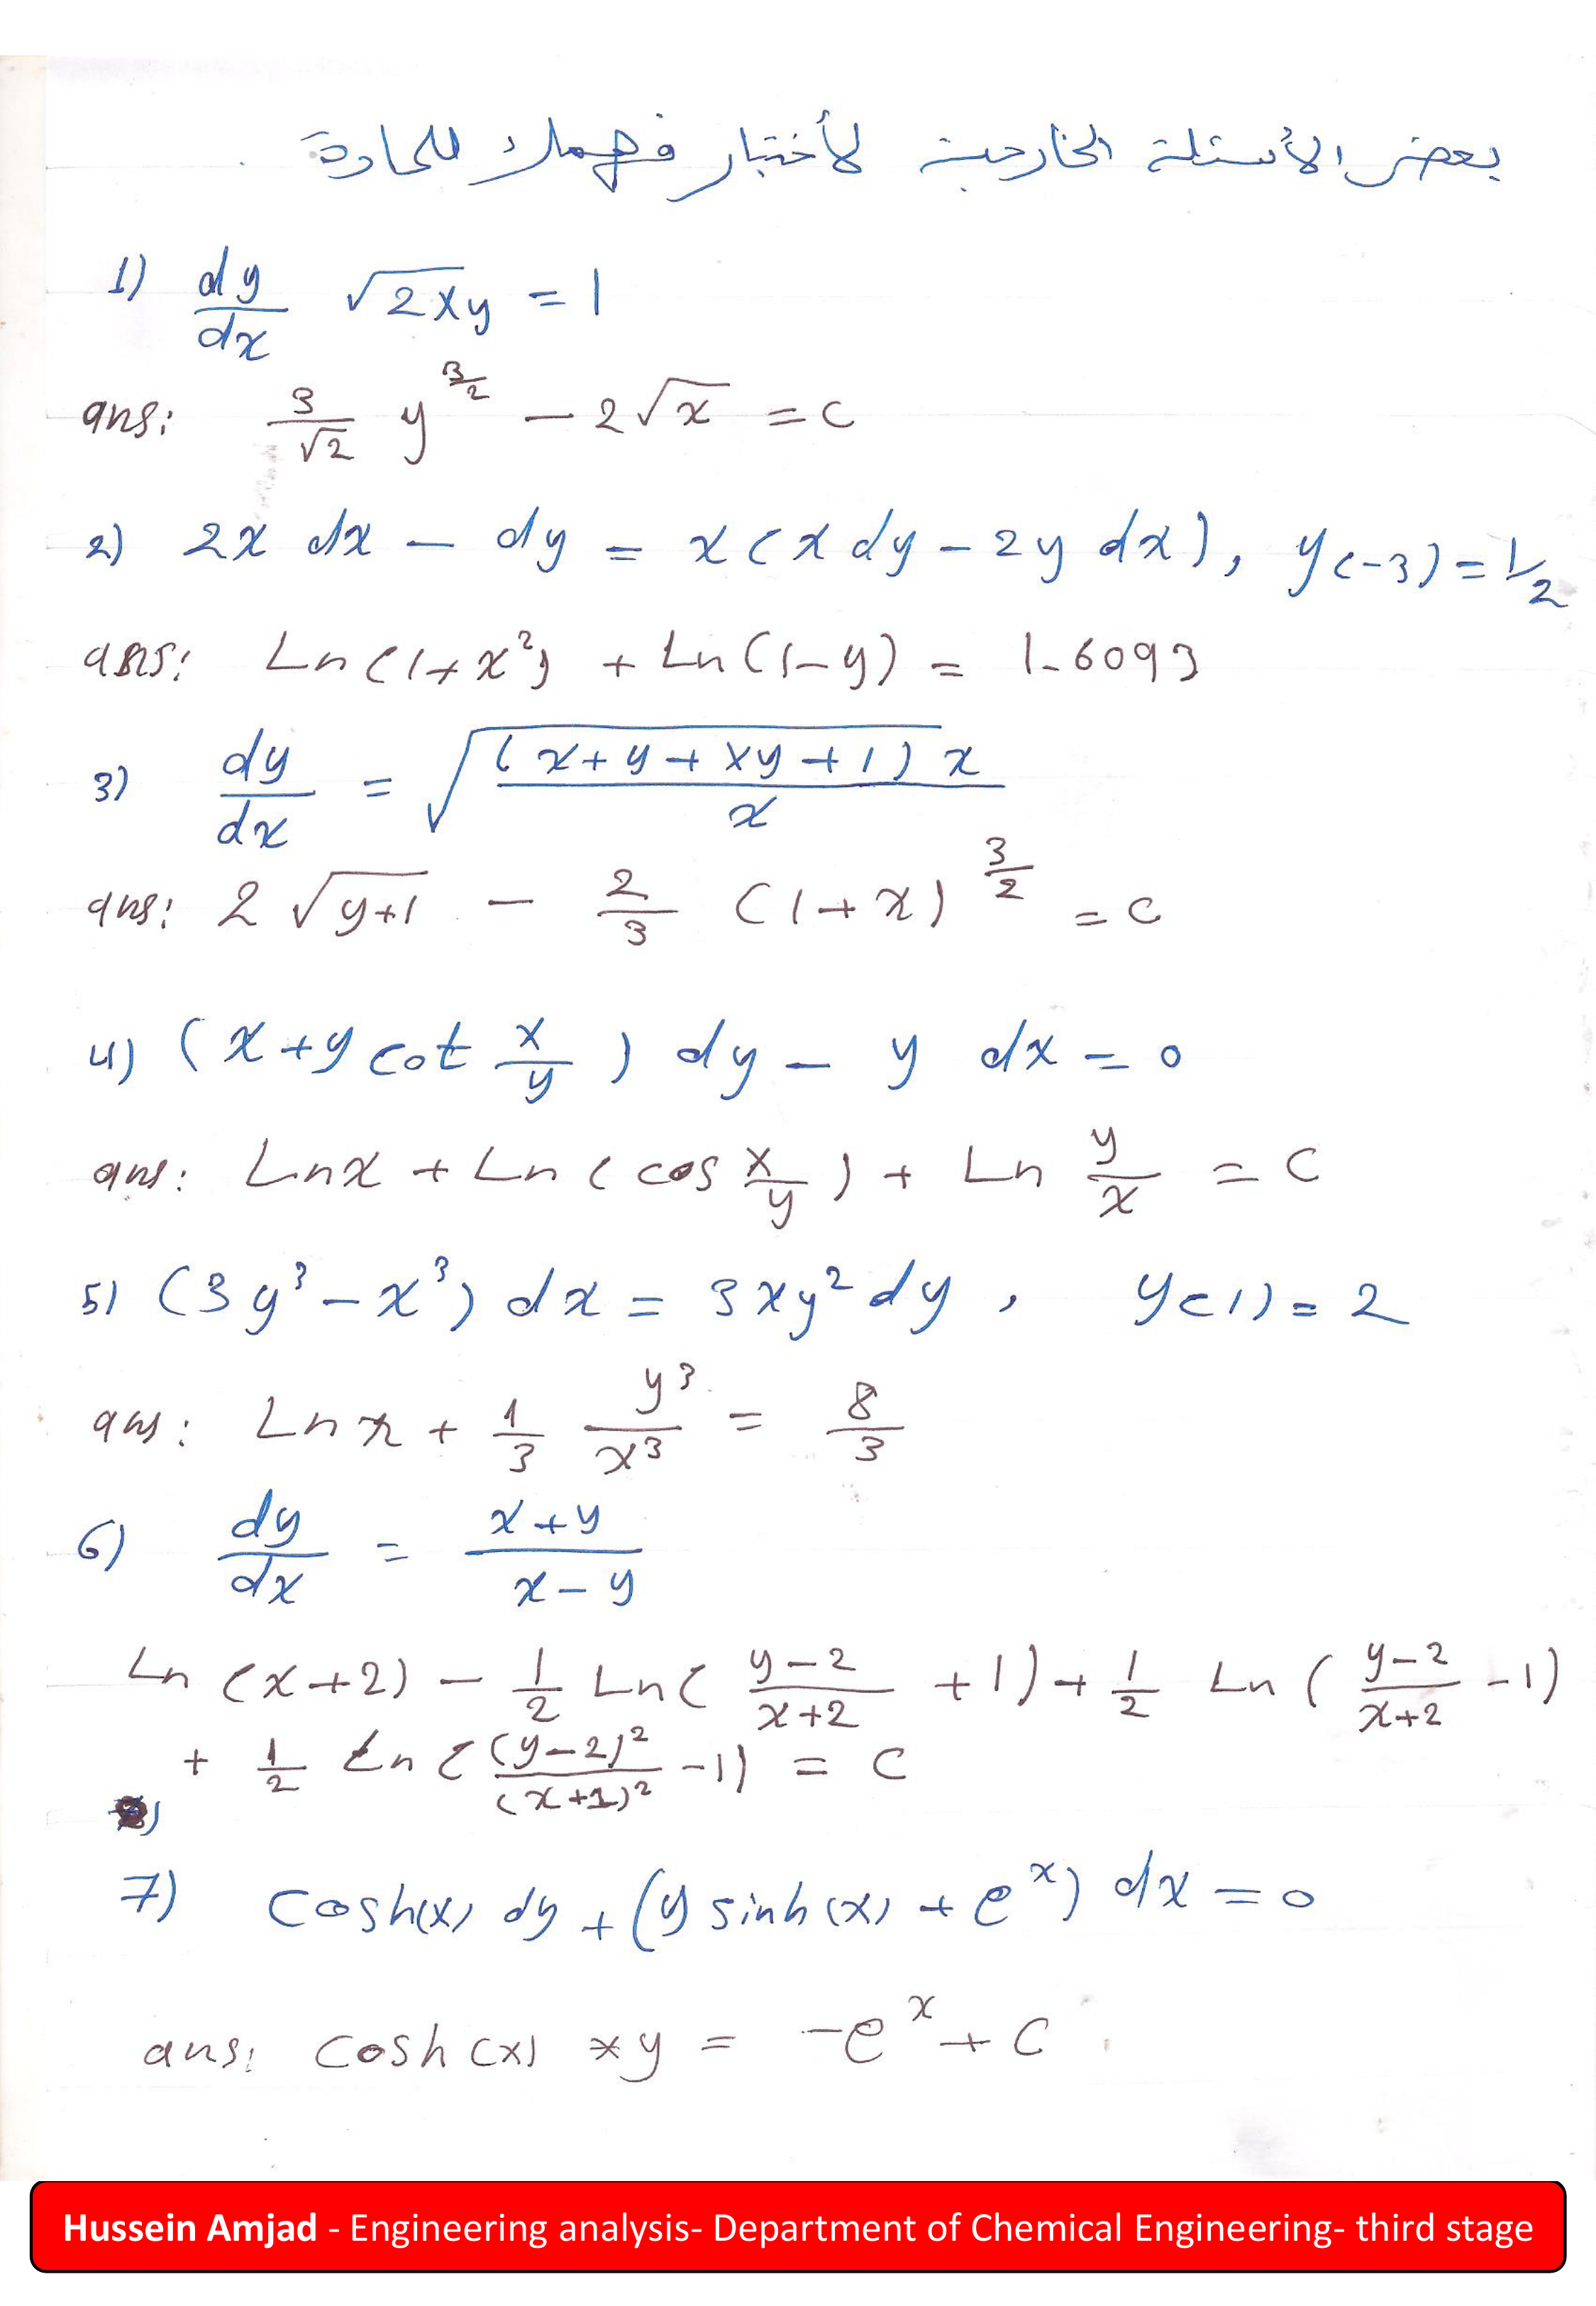 بعض الأسئلة الخارجية لأختبار فهمك للمادة .
1) dy/dx √2xy = 1
ans: 3/√2 y^(3/2) - 2√x = c
2) 2x dx - dy = x(x dy - 2y dx), y(-3) = 1/2
ans: Ln(1+x²) + Ln(1-y) = 1.6093
3) dy/dx = √((x+y+xy+1)x/x)
ans: 2√(y+1) - 2/3 (1+x)^(3/2) = c
4) (x+y cot x/y) dy - y dx = 0
ans: Lnx + Ln(cos x/y) + Ln y/x = C
5) (3y³-x³) dx = 3xy² dy, y(1) = 2
ans: Ln x + 1/3 y³/x³ = 8/3
6) dy/dx = x+y/x-y
Ln(x+2) - 1/2 Ln(y-2/x+2 +1) + 1/2 Ln(y-2/x+2 -1)
+ 1/2 Ln((y-2)²/(x+1)² -1) = C
7) cosh(x) dy + (y sinh(x) + e^x) dx = 0
ans: cosh(x) * y = -e^x + C
Hussein Amjad - Engineering analysis- Department of Chemical Engineering- third stage